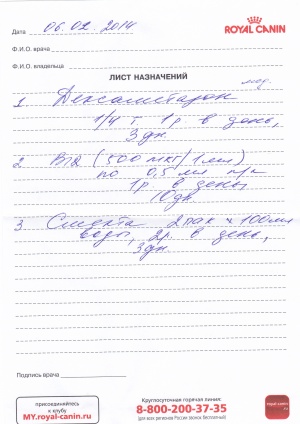 ROYAL CANIN
Дата 06.02.2014
Ф.И.О. врача
Ф.И.О. владельца
ЛИСТ НАЗНАЧЕНИЙ
1
1/4 т. 1р в день,
3 дн.
2. В12 (500 мкг/1мл)
по 0,5 мл п/к
1р в день,
10 дн
3 Смекта 2 пак × 100мл
воды, 2р. в день,
3 дн.
Подпись врача
присоединяйтесь
к клубу
MY.royal-canin.ru
Круглосуточная горячая линия:
8-800-200-37-35
(для всех регионов России звонок бесплатный)
royal canin